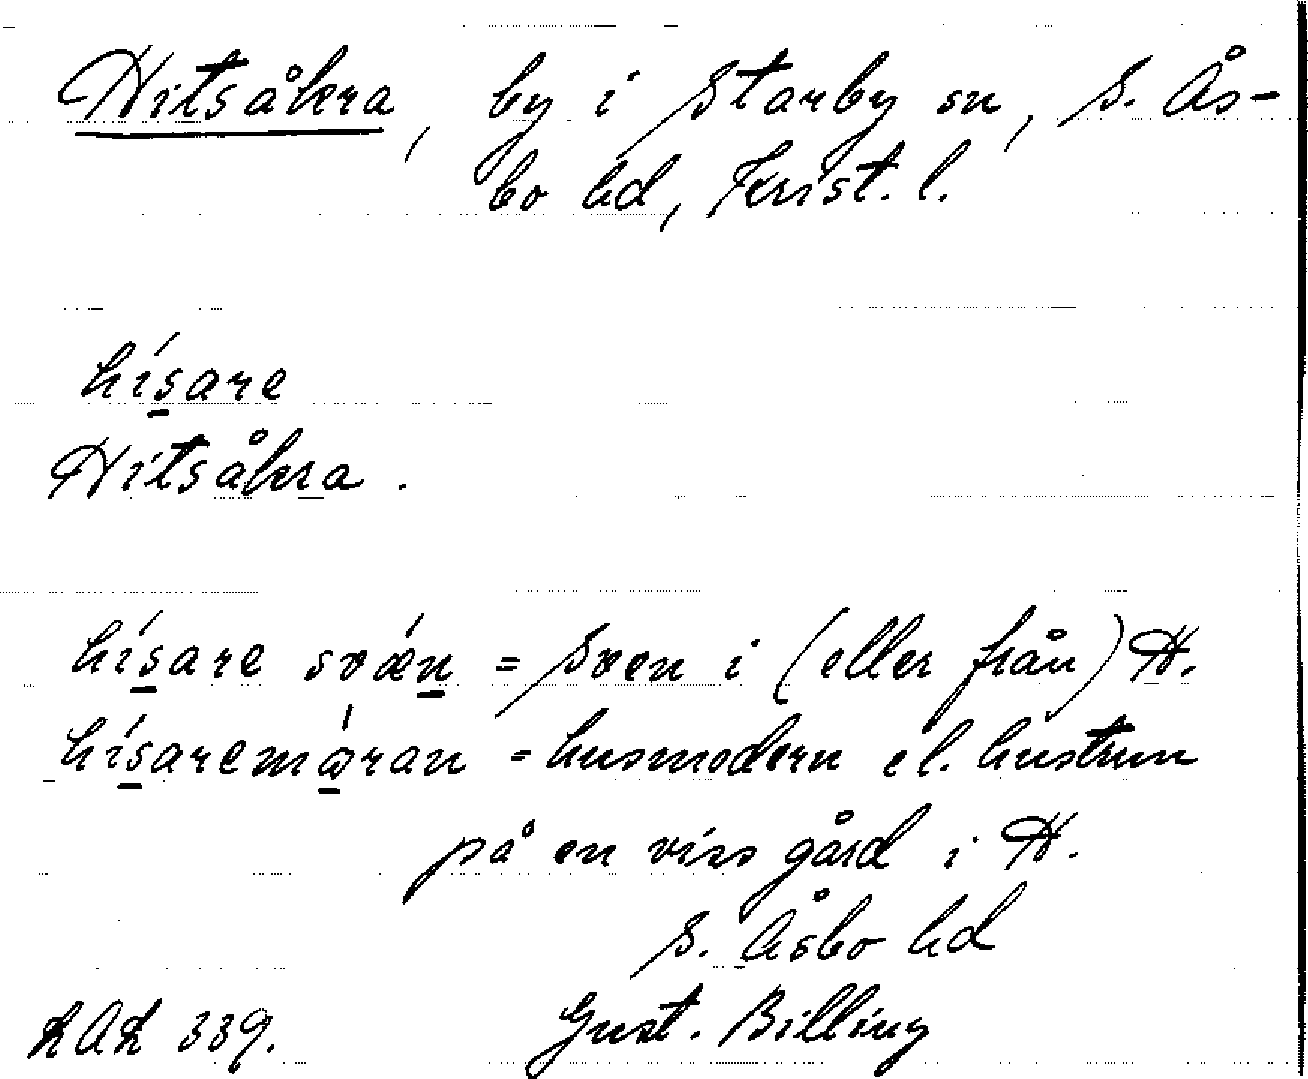 Hitsåkra, by i Starby sn, S. Ås-
bo hd, Krist. l.
hísare
Hitsåkra.
hísare svæ´n = Sven i (eller från) H.
hísaremǫ́ran = husmodern el. hustrun
på en viss gård i H.
S. Åsbo hd
LAL 339. Gust. Billing